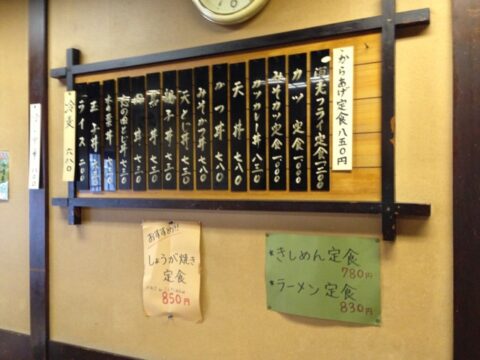 からあげ定食 八五〇円
カツ 定食 一、〇〇〇
みそカツ定食 一、〇〇〇
カツカレー丼 八三〇
天丼 七八〇
かつ丼 七八〇
みそかつ丼 七八〇
天とじ丼 七三〇
木の葉丼 七三〇
玉子丼 六三〇
ライス 二〇〇
冷麦 六八〇
おすすめ!!
しょうが焼き
定食
850円
*きしめん定食
780円
*ラーメン定食
830円